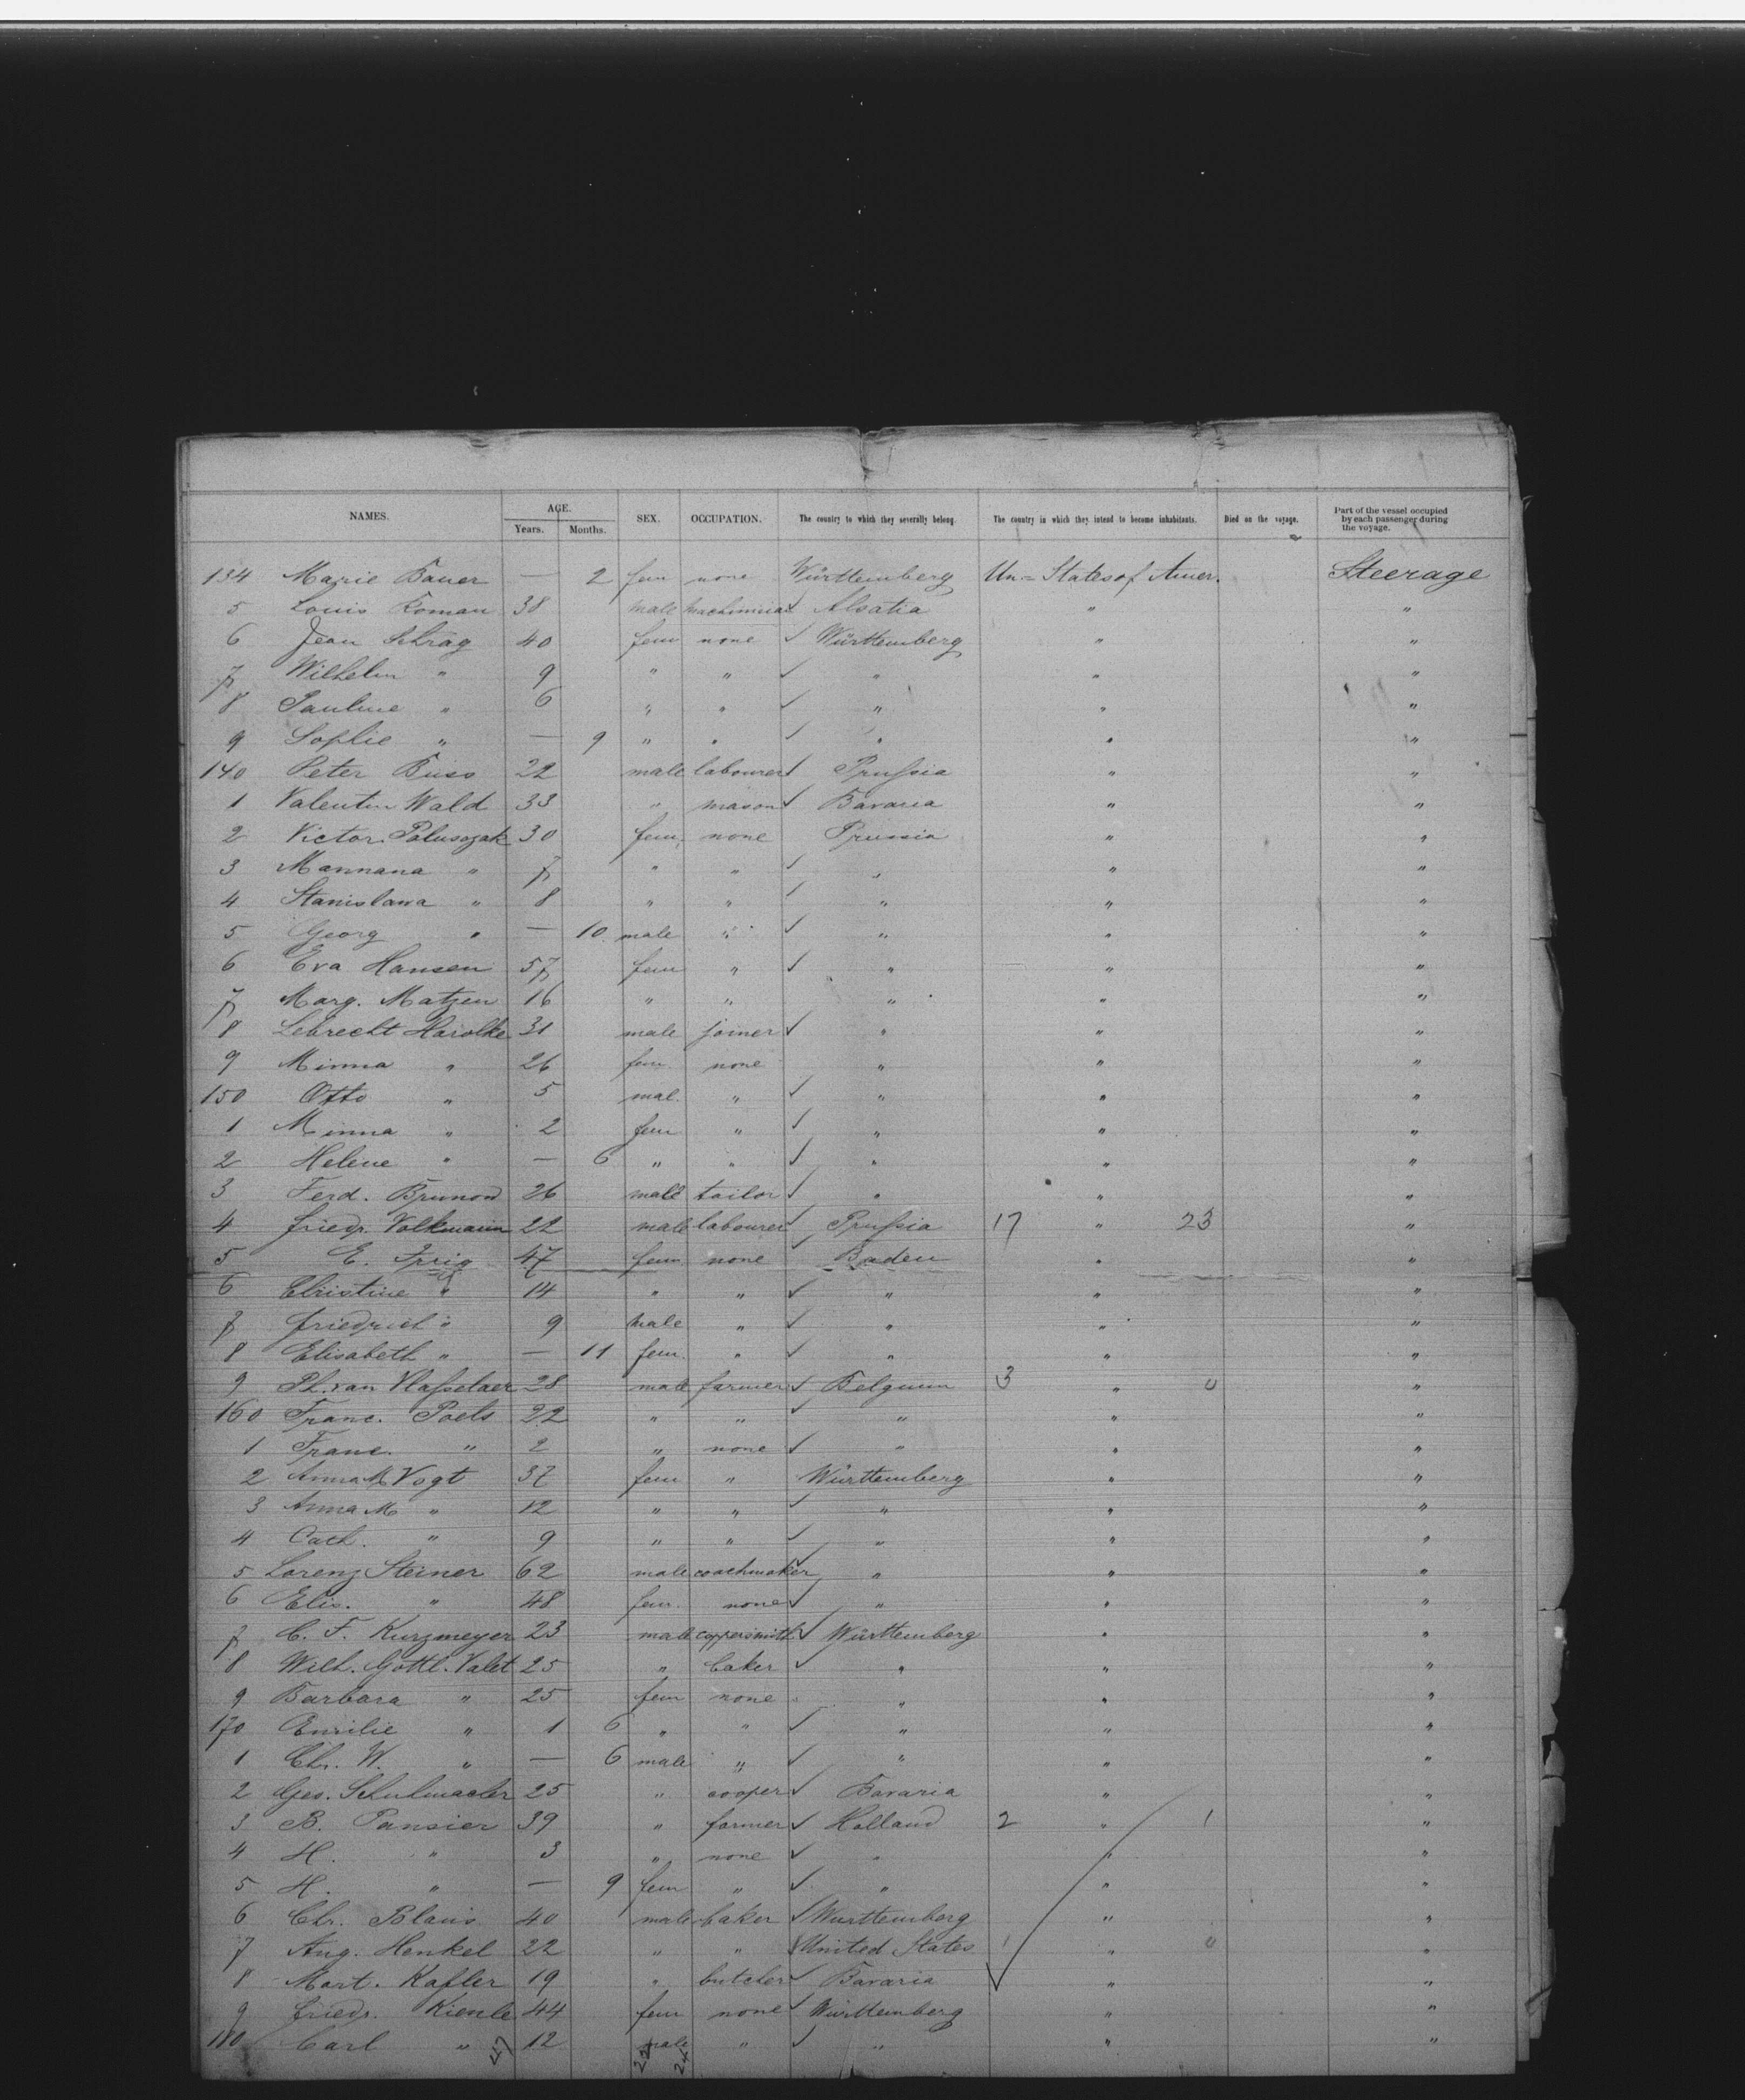 NAMES. AGE. SEX. OCCUPATION. The country to which they severally belong. The country in which they intend to become inhabitants. Died on the voyage. Part of the vessel occupied by each passenger during the voyage.
Years. Months.
134 Marie Bauer — 2 fem none Württemberg Un= States of Amer. Steerage
5 Louis Roman 38 male Alsatia " "
6 Jean Schrag 40 fem none ✓ Württemberg " "
7 Wilhelm " 9 " " ✓ " " "
8 Pauline " 6 " " ✓ " " "
9 Sophie " — 9 " " ✓ " " "
140 Peter Buss 22 male labourer ✓ Prussia " "
1 Valentin Wald 33 " mason ✓ Bavaria " "
2 Victor. 30 fem. none Prussia " "
3 Mannana " 7 " " ✓ " " "
4 Stanislawa " 8 " " ✓ " " "
5 Georg " — 10 male " ✓ " " "
6 Eva Hansen 57 fem " ✓ " " "
7 Marg. Matzen 16 " " " " "
8 Lebrecht 31 male joiner ✓ " " "
9 Minna " 26 fem. none " " "
150 Otto " 5 mal. " ✓ " " "
1 Minna " 2 fem " ✓ " " "
2 Helene " — 6 " " ✓ " " "
3 Ferd. 26 male tailor ✓ " " "
4 Friedr. Volkmann 22 male labourer ✓ Prussia 17 " 23 "
5 E. 47 fem none ✓ Baden " "
6 Christine " 14 " " ✓ " " "
7 Friedrich " 9 male " ✓ " " "
8 Elisabeth " — 11 fem. " ✓ " " "
9 Ph. van Vlasselaer 28 male farmer ✓ Belgium 3 " 0 "
160 Franc. Poels 22 " " ✓ " " "
1 Franc. " 2 " none ✓ " " "
2 Anna M Vogt 37 fem " Württemberg " "
3 Anna M " 12 " " ✓ " " "
4 Cath. " 9 " " ✓ " " "
5 Lorenz Steiner 62 male coachmaker ✓ " " "
6 Elis. " 48 fem. none ✓ " " "
7 C. F. Kurzmeyer 23 male coppersmith ✓ Württemberg " "
8 Wilh. Gottl. Valet 25 " baker ✓ " " "
9 Barbara " 25 fem none " " "
170 Emilie " 1 6 " " ✓ " " "
1 Chr. W. " — 6 male " ✓ " " "
2 Geo. Schuhmacher 25 " cooper ✓ Bavaria " "
3 B. Pansier 39 " farmer ✓ Holland 2 " 1 "
4 H. " 3 " none ✓ " " "
5 H. " — 9 fem " ✓ " " "
6 Chr. 40 male baker ✓ Württemberg " "
7 Aug. Henkel 22 " " United States 1 " 0 "
8 Mart. Kafler 19 " butcher ✓ Bavaria " "
9 Friedr. Kienle 44 fem none ✓ Württemberg " "
180 Carl " 12 male " ✓ " " "
47 24